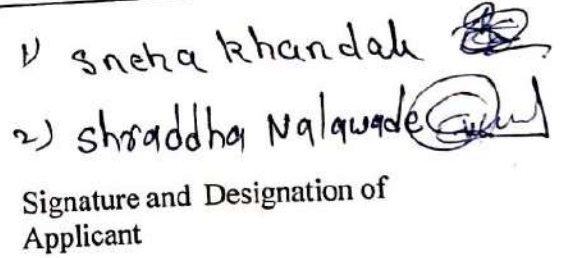 1) Sneha Khandale
2) Shraddha Nalawade
Signature and Designation of
Applicant